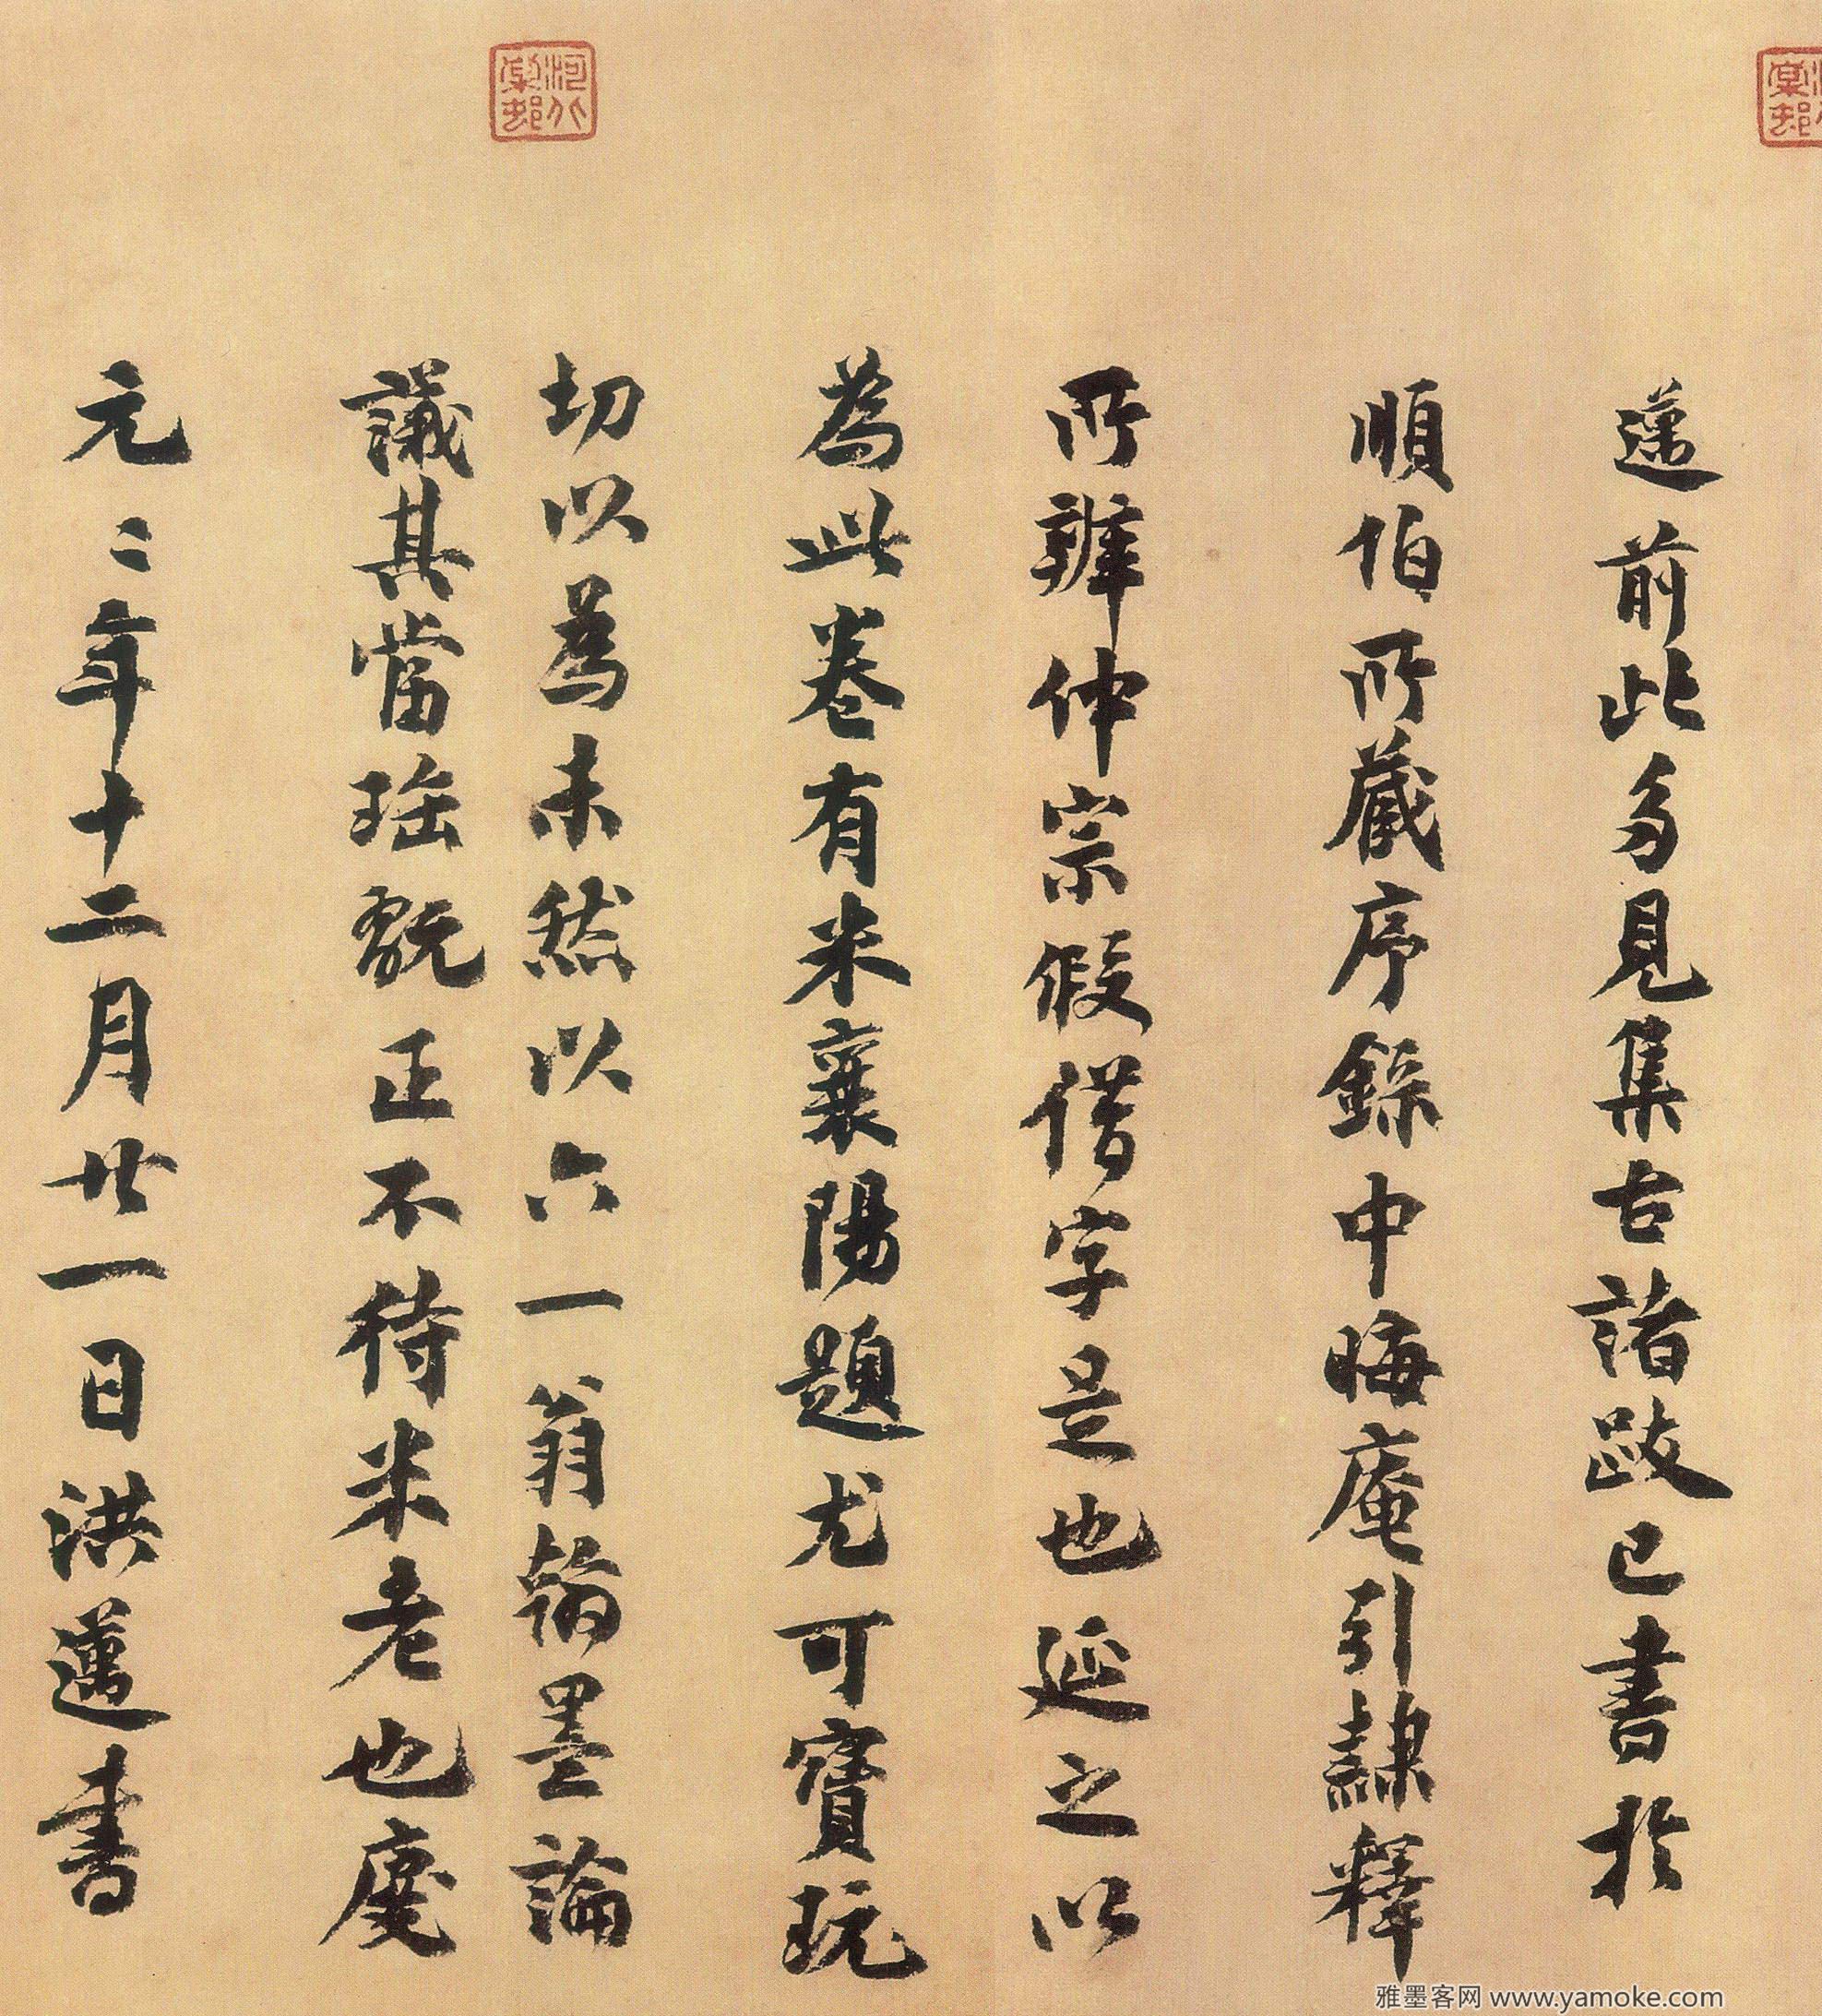 邁前此多見集古諸跋已書於
順伯所藏序錄中晦庵引隸釋
所辨仲宗假借字是也延之以
為此卷有米襄陽題尤可寶玩
切以為未然以六一翁翰墨論
議其當珤翫正不待米老也慶
元〻年十二月廿一日洪邁書
河北棠邨
雅墨客网 www.yamoke.com